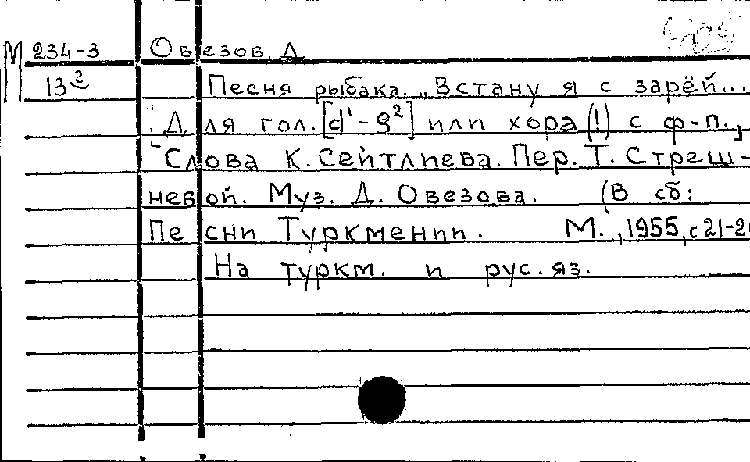 М 234-3 Овезов, Д.
13² Песня рыбака. „Встану я с зарёй...
Для гол. [d¹-g²] или хора (!) с ф-п.,
Слова К. Сейтлиева. Пер. Т. Стреш-
невой. Муз. Д. Овезова. (В сб:
Песни Туркмении. М., 1955, с 21-2
На туркм. и рус. яз.